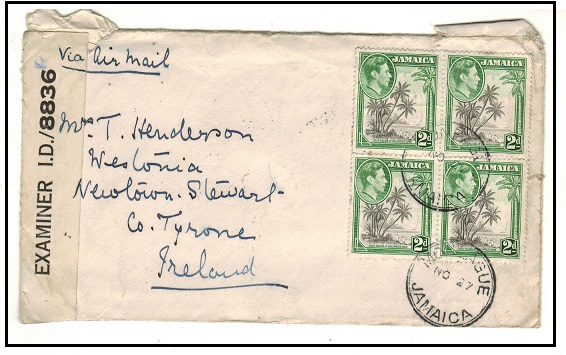 Via Air Mail
EXAMINER I.D./8836
Mrs. T. Henderson
Westonia
Newtown-Stewart-
Co. Tyrone
Ireland
JAMAICA
2d
JAMAICA
2d
2d
2d
NO 27
JAMAICA